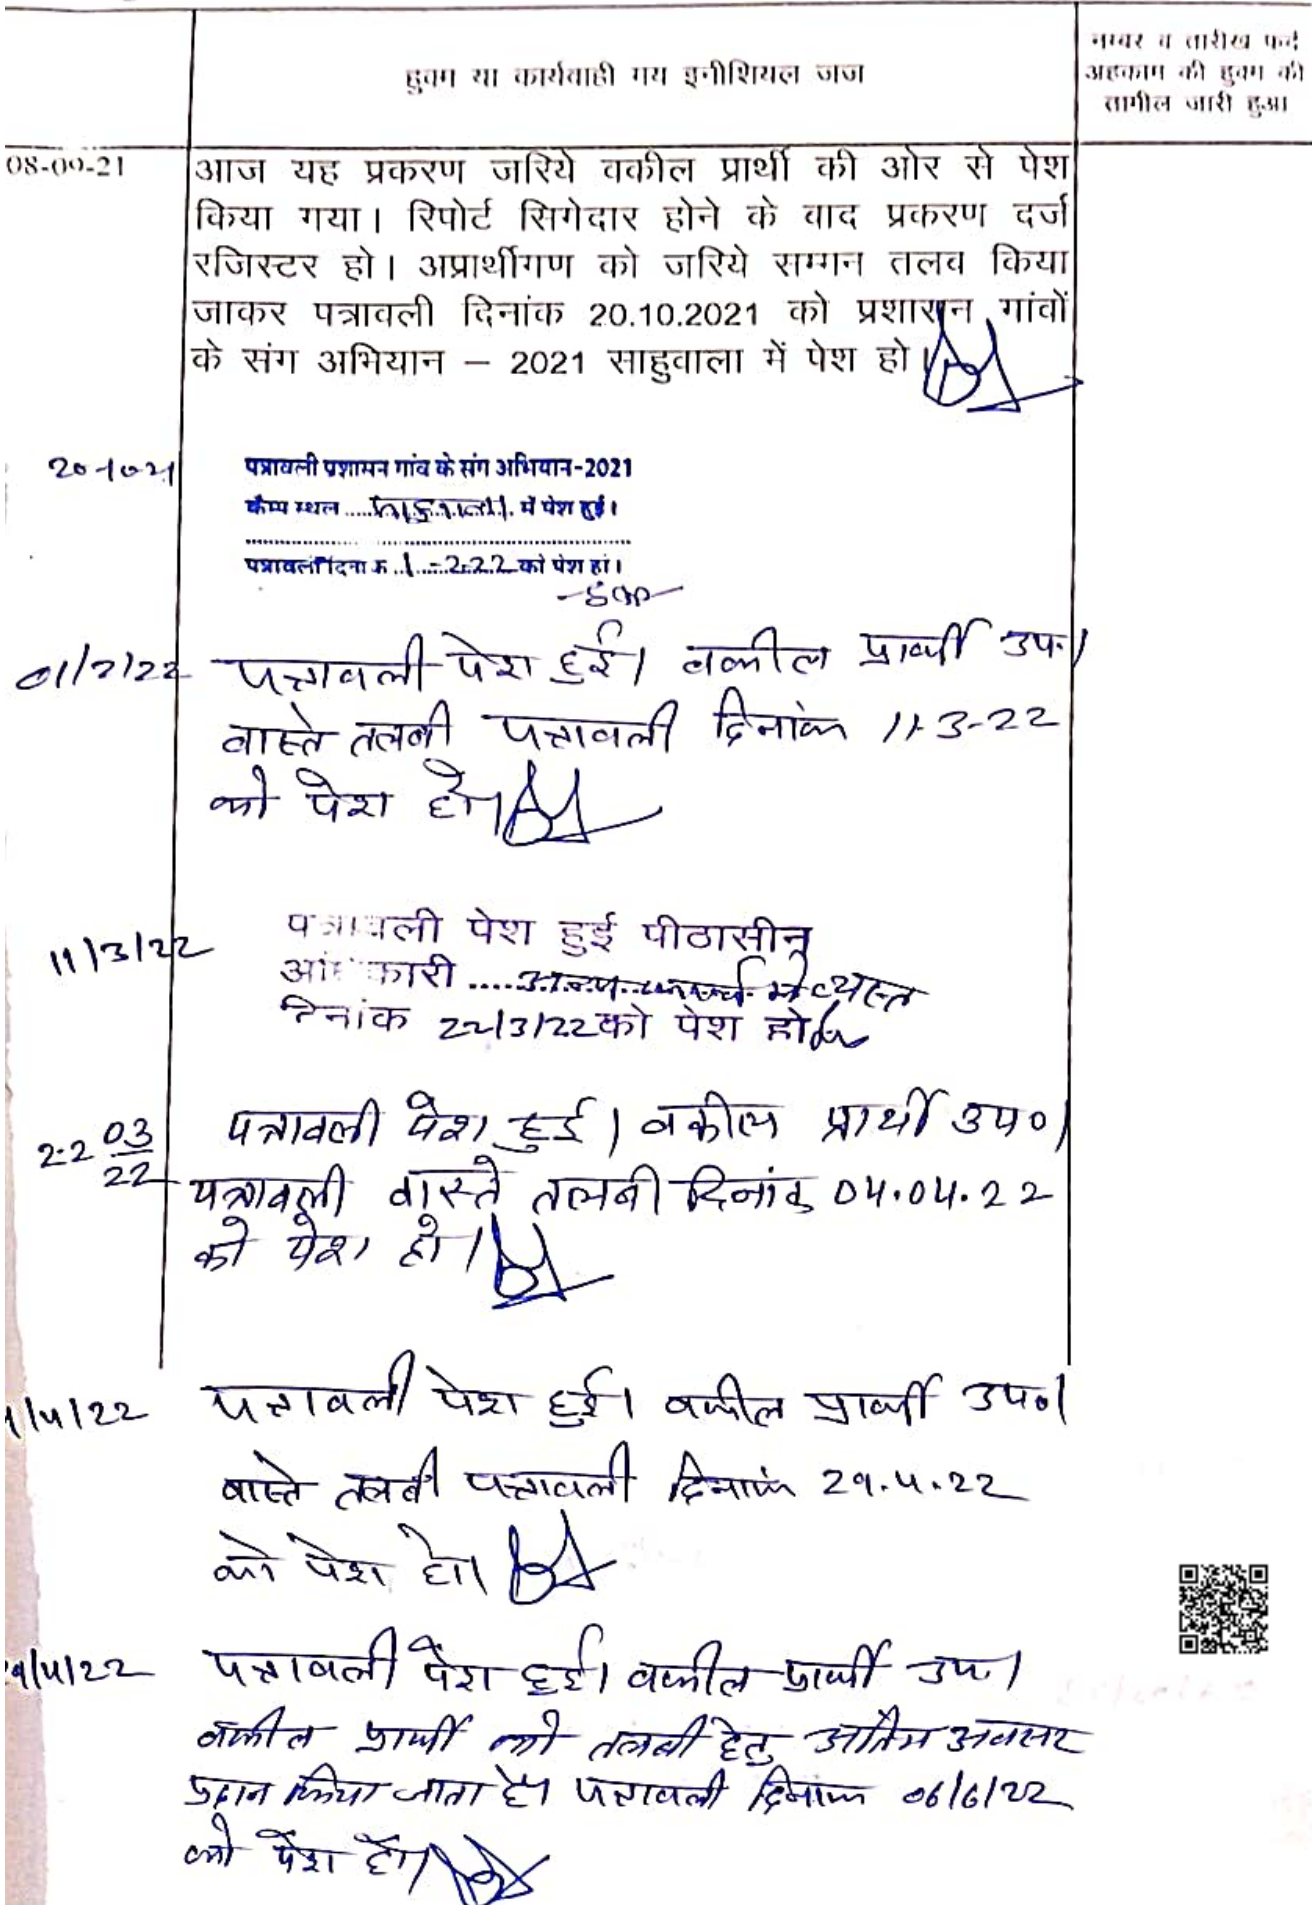 हुक्म या कार्यवाही मय इनीशियल जज
नम्बर व तारीख फर्द
अहकाम की हुक्म की
तामील जारी हुआ
08-09-21
आज यह प्रकरण जरिये वकील प्रार्थी की ओर से पेश
किया गया। रिपोर्ट सिगेदार होने के बाद प्रकरण दर्ज
रजिस्टर हो। अप्रार्थीगण को जरिये सम्मन तलब किया
जाकर पत्रावली दिनांक 20.10.2021 को प्रशासन गांवों
के संग अभियान – 2021 साहुवाला में पेश हो।
20-10-21
पत्रावली प्रशासन गांव के संग अभियान-2021
कैम्प स्थल ..... साहुवाला. में पेश हुई।
पत्रावली दिनांक .1.-2.22 को पेश हो।
01/2/22
पत्रावली पेश हुई। वकील प्रार्थी उप.।
वास्ते तलबी पत्रावली दिनांक 11-3-22
को पेश हो।
11/3/22
पत्रावली पेश हुई पीठासीन
अधिकारी ..... अन्य कार्य में व्यस्त
दिनांक 22/3/22 को पेश हो
22 03/22
पत्रावली पेश हुई। वकील प्रार्थी उप०।
पत्रावली वास्ते तलबी दिनांक 04.04.22
को पेश हो।
/4/22
पत्रावली पेश हुई। वकील प्रार्थी उप०।
वास्ते तलबी पत्रावली दिनांक 29.4.22
को पेश हो।
9/4/22
पत्रावली पेश हुई। वकील प्रार्थी उप.।
वकील प्रार्थी को तलबी हेतु अंतिम अवसर
प्रदान किया जाता है। पत्रावली दिनांक 06/6/22
को पेश हो।